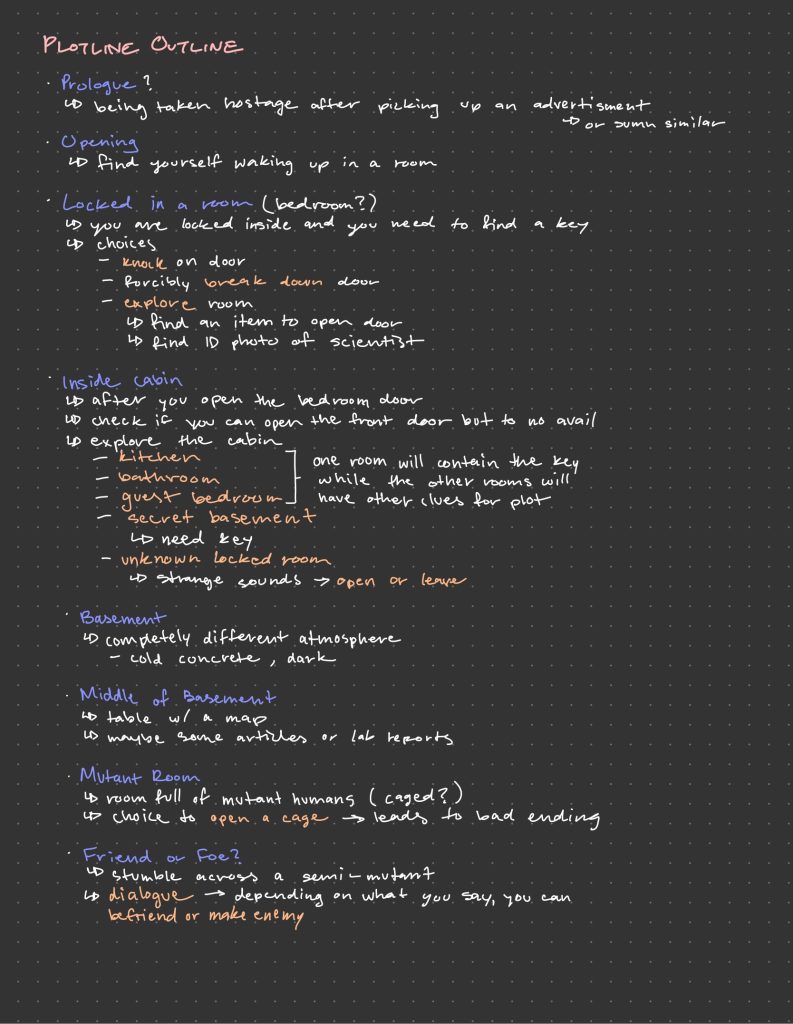 PLOTLINE OUTLINE
· Prologue?
↳ being taken hostage after picking up an advertisment
↳ or sumn similar
· Opening
↳ find yourself waking up in a room
· Locked in a room (bedroom?)
↳ you are locked inside and you need to find a key
↳ choices
- knock on door
- forcibly break down door
- explore room
↳ find an item to open door
↳ find ID photo of scientist
· Inside cabin
↳ after you open the bedroom door
↳ check if you can open the front door but to no avail
↳ explore the cabin
- kitchen
- bathroom
- guest bedroom
one room will contain the key
while the other rooms will
have other clues for plot
- secret basement
↳ need key
- unknown locked room
↳ strange sounds → open or leave
· Basement
↳ completely different atmosphere
- cold concrete, dark
· Middle of Basement
↳ table w/ a map
↳ maybe some articles or lab reports
· Mutant Room
↳ room full of mutant humans (caged?)
↳ choice to open a cage → leads to bad ending
· Friend or Foe?
↳ stumble across a semi-mutant
↳ dialogue → depending on what you say, you can
befriend or make enemy